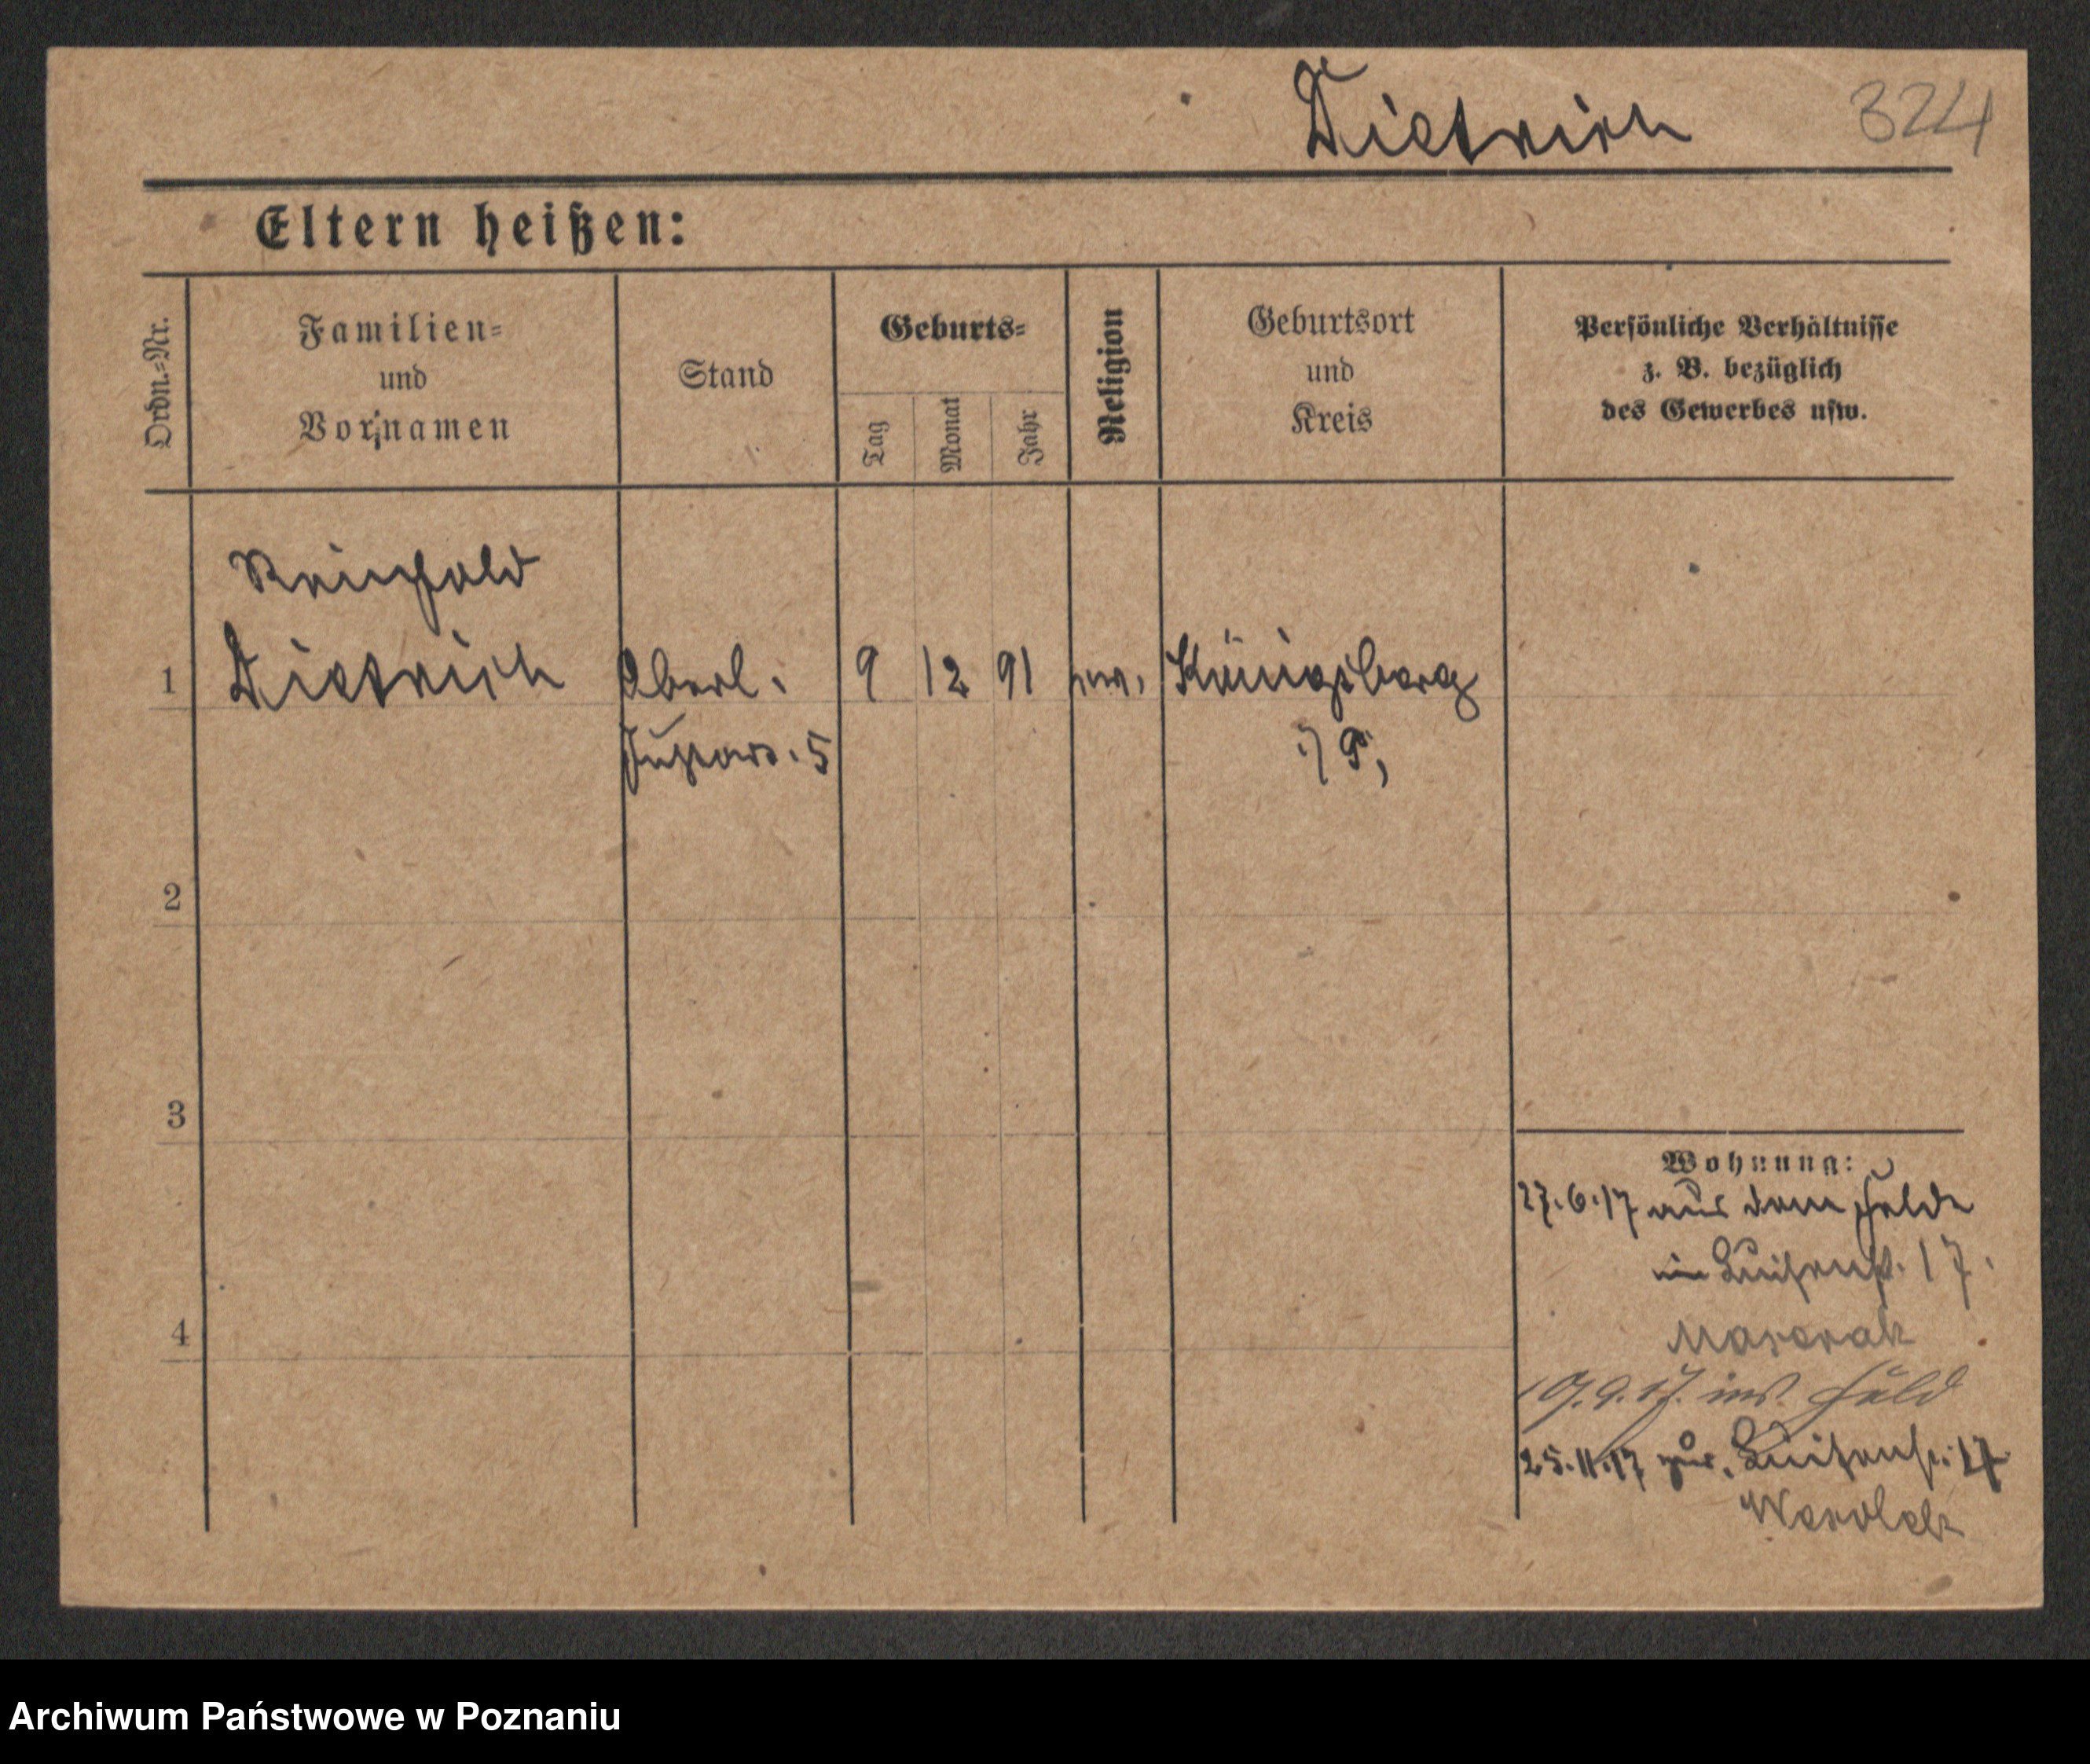 Dietrich 324
Eltern heißen:
Ordn.-Nr.
Familien-
und
Vornamen
Stand
Geburts-
Tag
Monat
Jahr
Religion
Geburtsort
und
Kreis
Persönliche Verhältnisse
z. B. bezüglich
des Gewerbes usw.
Reinhold
1 Dietrich Oberl. 9 12 91 ev. Königsberg
Fußart. 5 i/P,
2
3
4
Wohnung:
27.6.17 aus dem Felde
in Luisenst. 17.
19.9.17. ins Feld
25.11.17 zur. Luisenst. 17
Archiwum Państwowe w Poznaniu